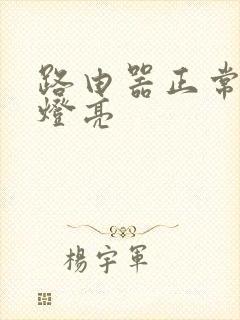 路由器正常
燈亮
楊宇軍